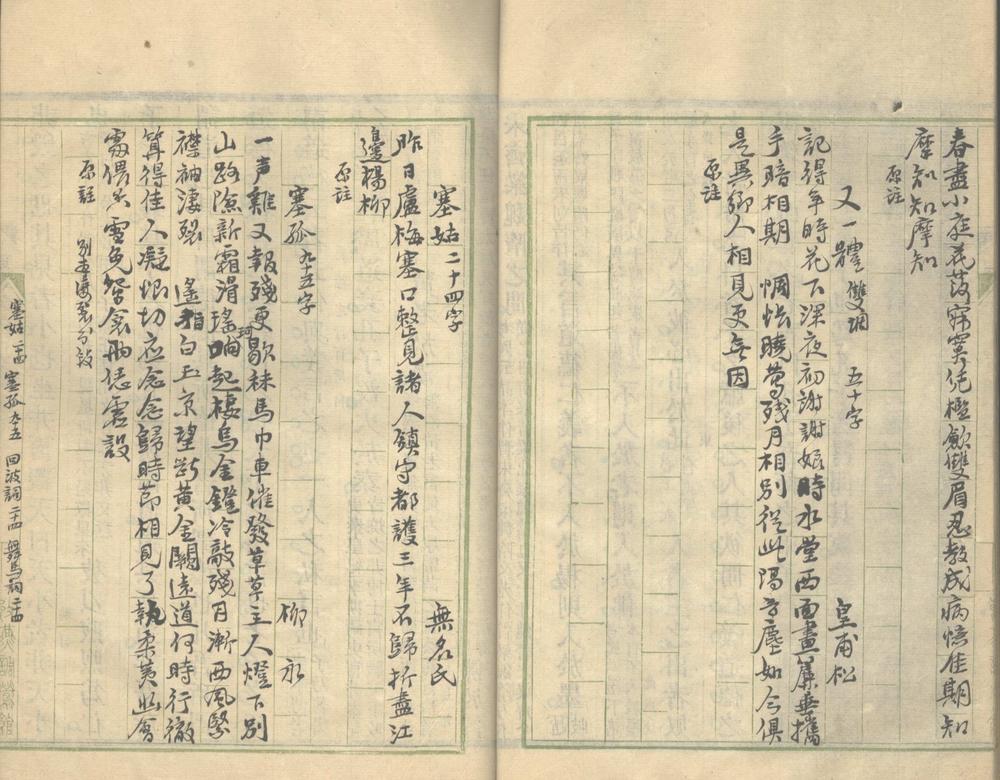 春盡小庭花落寂寞凭檻斂雙眉忍教成病憶佳期知
摩知知摩知
原註
又一體 雙調 五十字 皇甫松
記得年時花下深夜初謝謝娘時水堂西面畫簾垂攜
手暗相期 惆悵曉鶯殘月相別從此隔音塵如今俱
是異鄉人相見更無因
原註
塞姑 二十四字 無名氏
昨日盧梅塞口整見諸人鎮守都護三年不歸折盡江
邊楊柳
原註
塞孤 九十五字 柳永
一声雞又報殘更歇秣馬巾車催發草草主人燈下別
山路險新霜滑瑤珂响起棲烏金鐙冷敲殘月漸西風緊
襟袖淒裂 遙指白玉京望斷黃金闕遠道何時行徹
算得佳人凝恨切应念念歸時節相見了執柔荑幽會
處偎香雪免鴛衾兩恁虛設
原註
塞姑 二四 塞孤 九五 回波詞 二四 舞馬詞 二四